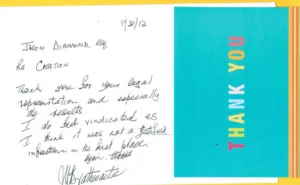 11/20/12
Jason Diamond, Esq
Re Citation
Thank you for your legal
representation and especially
the results.
I do feel vindicated as
I think it was not a
infraction in the first place
again. thanks
THANK YOU